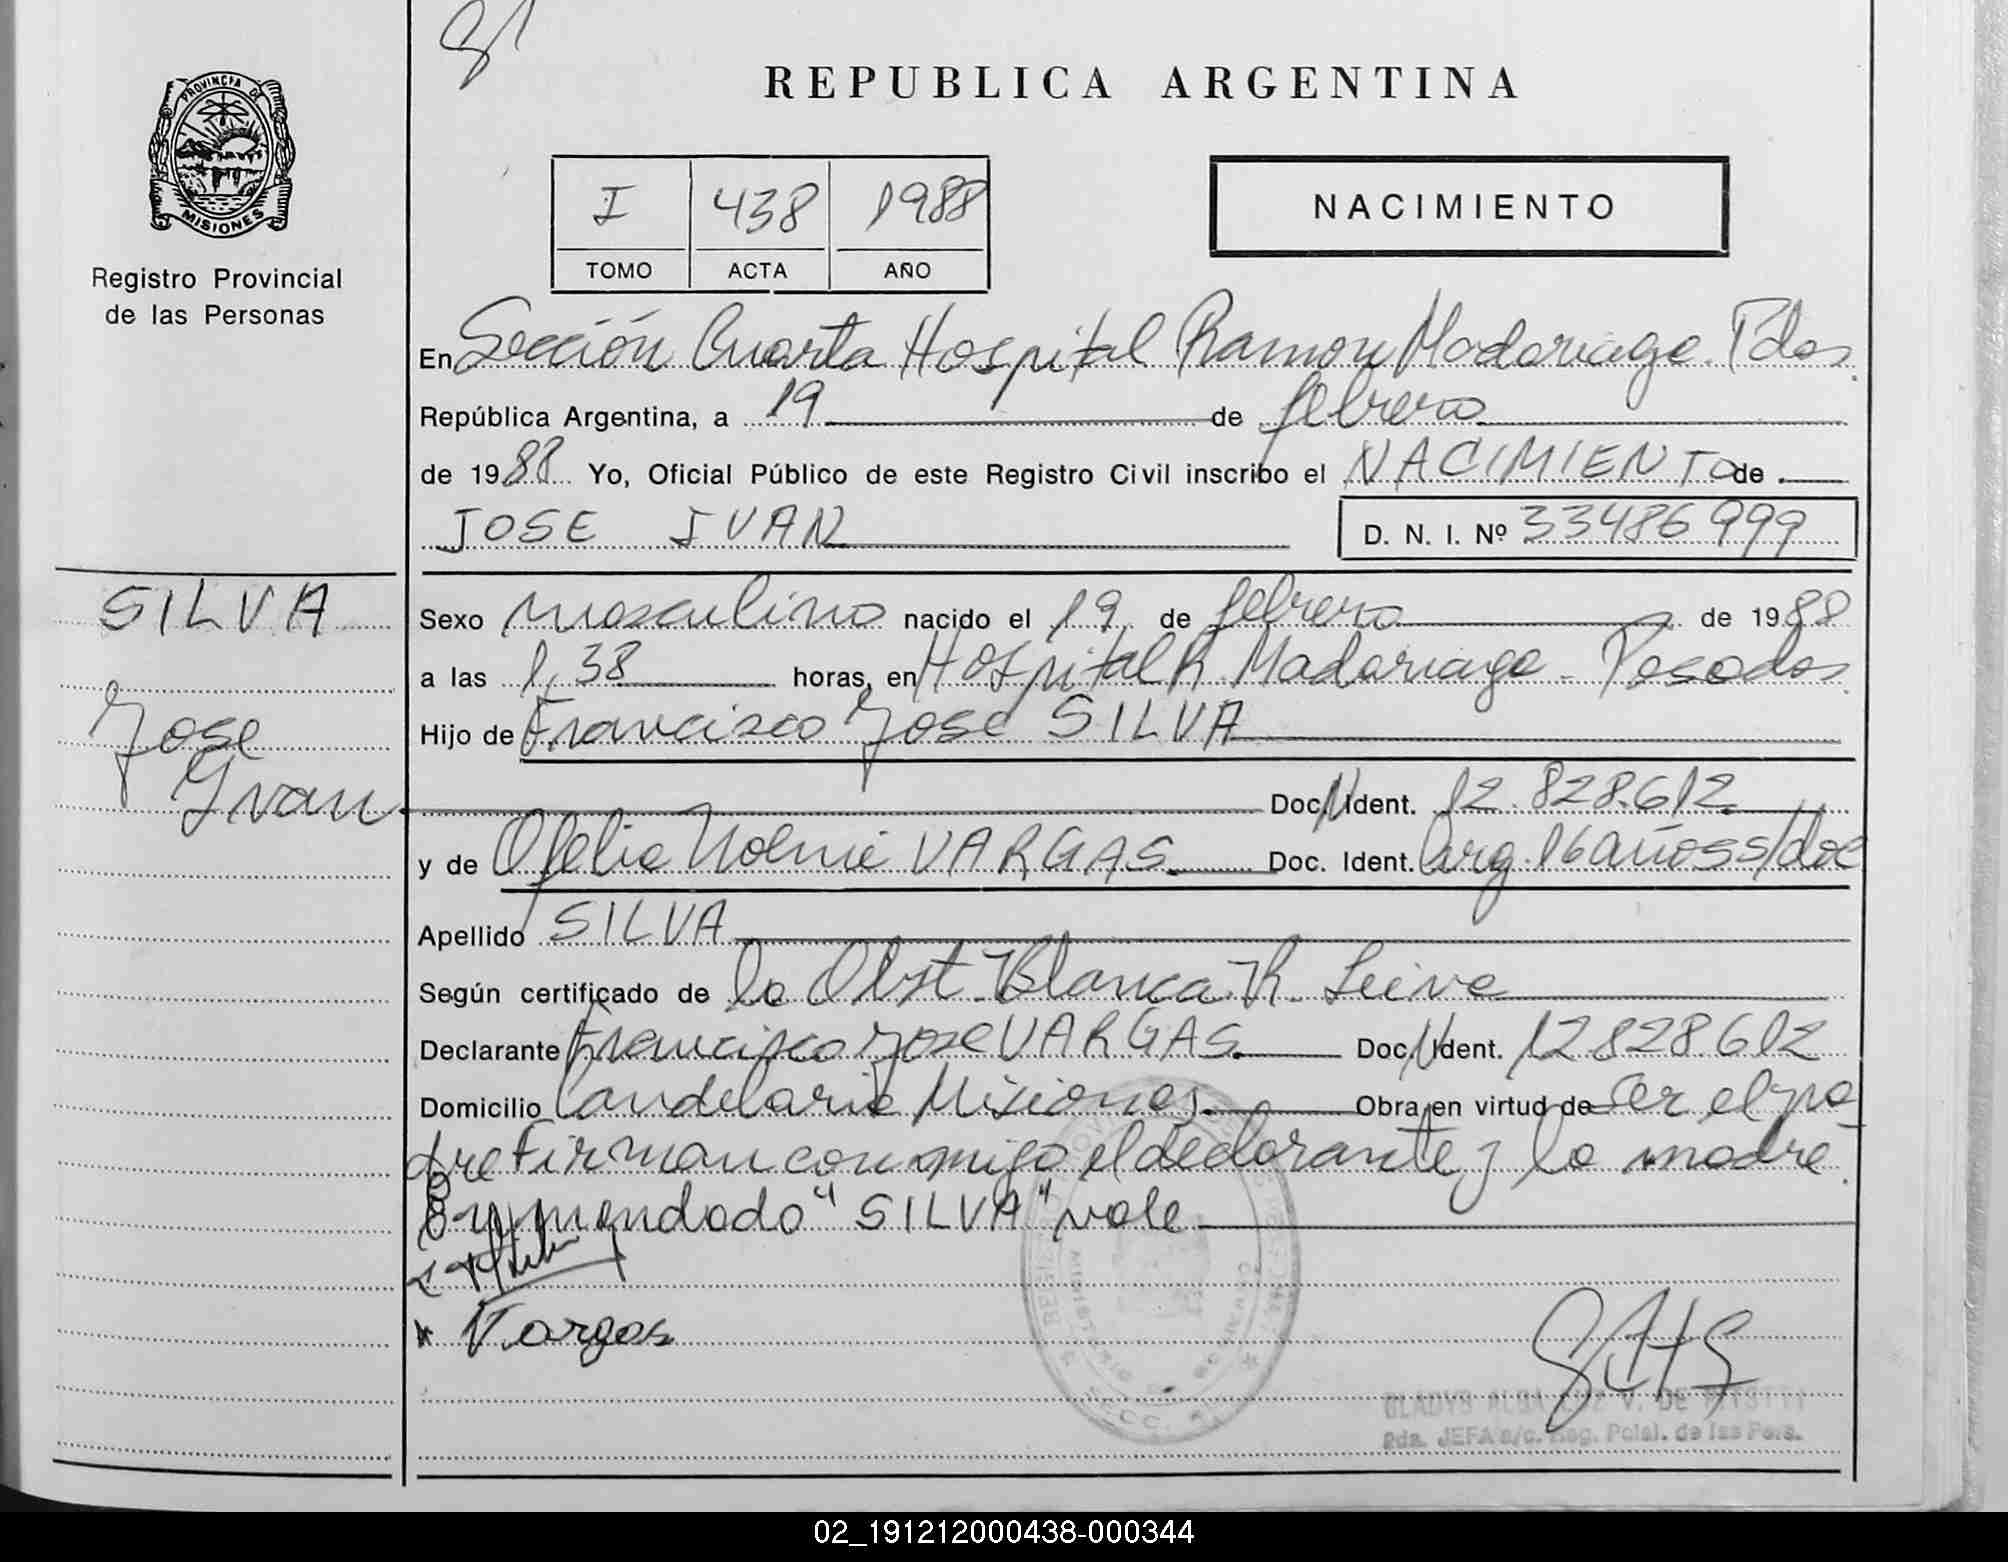 REPUBLICA ARGENTINA
PROVINCIA DE
MISIONES
Registro Provincial
de las Personas
I 438 1988
TOMO ACTA AÑO
NACIMIENTO
En Sección Cuarta Hospital Ramon Madariaga. Pdas.
República Argentina, a 19 de febrero
de 1988 Yo, Oficial Público de este Registro Civil inscribo el NACIMIENTO de
JOSE IVAN D. N. I. Nº 33486999
SILVA
Jose
Ivan
Sexo masculino nacido el 19 de febrero de 1988
a las 1,38 horas, en Hospital R. Madariaga - Posadas
Hijo de Francisco Jose SILVA
Doc. N. Ident. 12.828.612
y de Ofelia Noemi VARGAS. Doc. Ident. Arg. 16 años s/doc
Apellido SILVA
Según certificado de la Obst. Blanca R. Leiva
Declarante Francisco Jose VARGAS. Doc. N. Ident. 12828.612
Domicilio Candelaria Misiones. Obra en virtud de ser el pa-
dre Firman conmigo el declarante y la madre.
Enmendado "SILVA" vale
Vargas
GLADYS ALBA V. DE
JEFA a/c. Reg. Pcial. de las Pers.
02_191212000438-000344